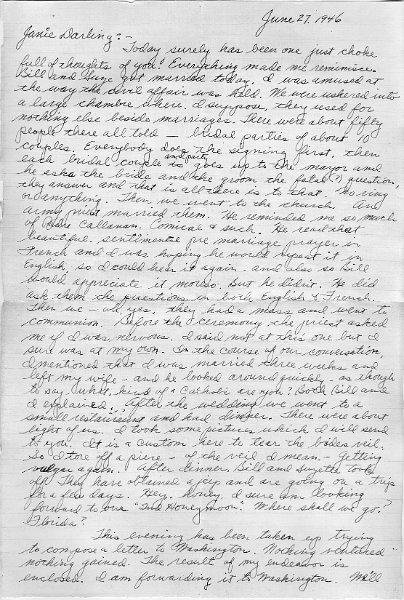 June 27, 1946
Janie Darling:-
Today surely has been one just choke
full of thoughts of you. Everything made me reminisce.
Bill and Suze got married today. I was amused at
the way the civil affair was held. We were ushered into
a large chambre where, I suppose, they used for
nothing else besides marriages. There were about fifty
people there all told — bridal parties of about 10
couples. Everybody does the signing first, then
each bridal couple and party goes up to the mayor and
he asks the bride and the groom the fatal question,
they answer and that is all there is to that. No ring
or anything. Then, we went to the church. An
army priest married them. He reminded me so much
of Padre Callanan. Comical & such. He read that
beautiful, sentimental pre marriage prayer in
French and I was hoping he would repeat it in
English, so I could hear it again - and also so Bill
would appreciate it more so. But he didn't. He did
ask them the questions in both English & French.
Then we - oh yes, they had a mass and went to
communion. Before the ceremony the priest asked
me if I was nervous. I said not at this one but I
sure was at my own. In the course of our conversation,
I mentioned that I was married three weeks and
left my wife - and he looked around quickly - as though
to say what kind of a Catholic are you? Both Bill and
I explained. After the wedding we went to a
small restaurant and had dinner. There were about
eight of us. I took some pictures which I will send
to you. It is a custom here to tear the brides veil.
So I tore off a piece - of the veil I mean - getting
vulgar again. After dinner, Bill and Suzette took
off. They have obtained a jeep and are going on a trip
for a few days. Hey, honey, I sure am looking
forward to our "2nd Honeymoon". Where shall we go?
Florida?
This evening has been taken up trying
to compose a letter to Washington. Nothing ventured
nothing gained. The result of my endeavor is
enclosed. I am forwarding it to Washington. We'll